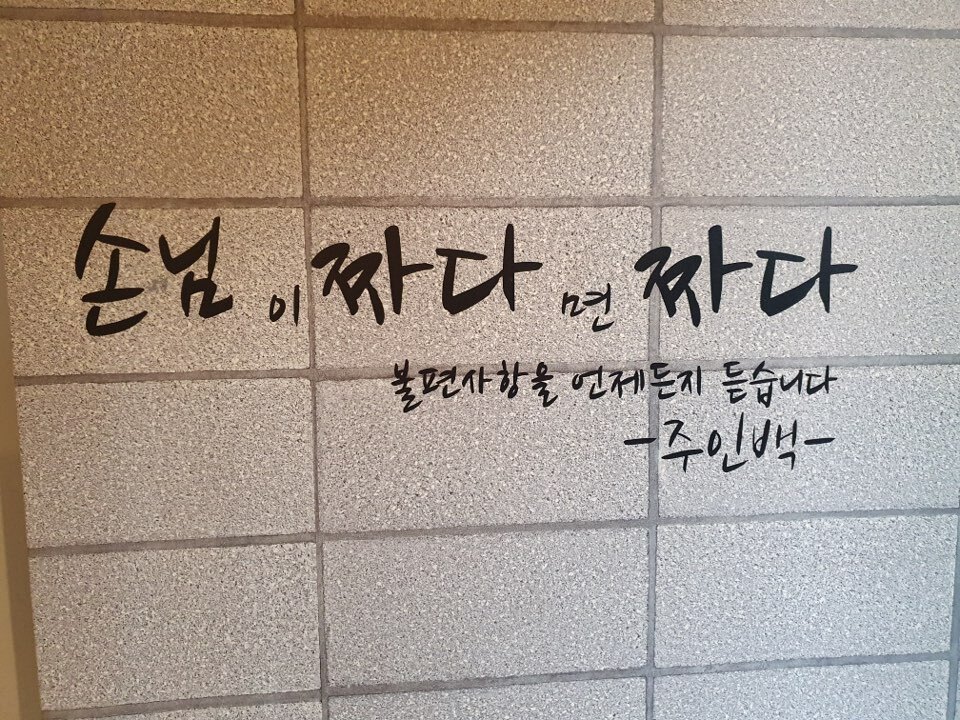 손님이 짜다면 짜다
불편사항을 언제든지 듣습니다
-주인백-